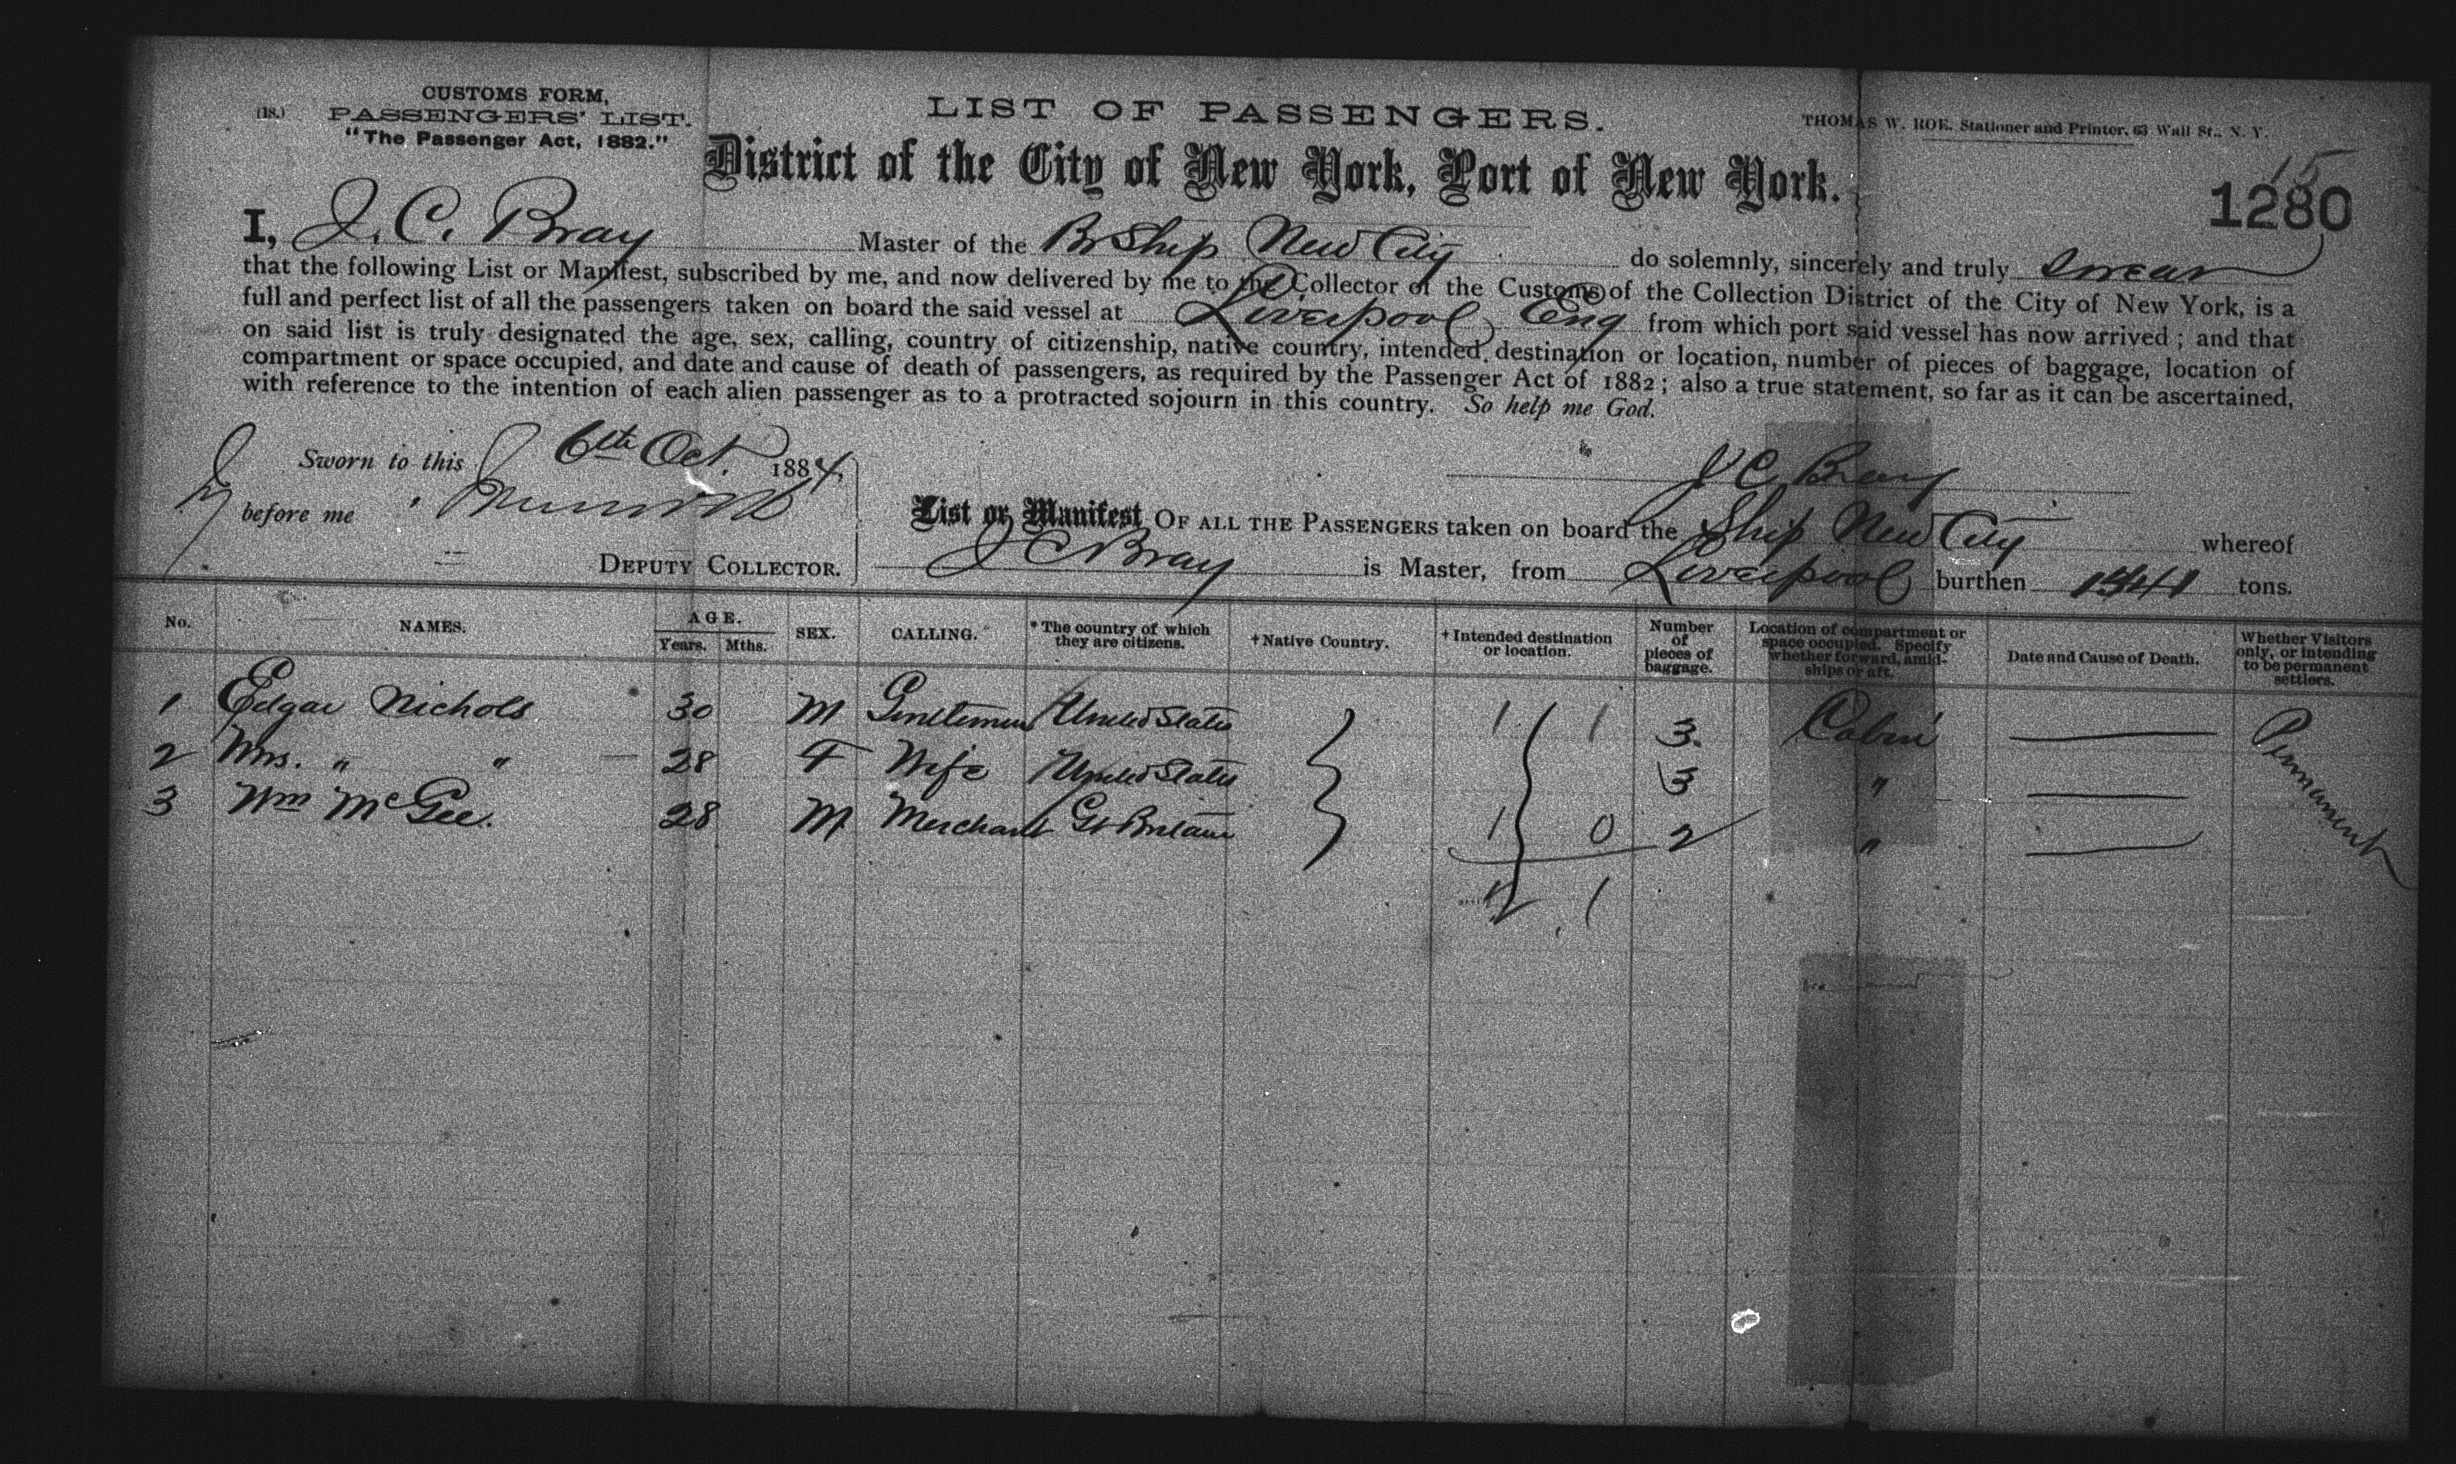 (18.)
CUSTOMS FORM,
PASSENGERS' LIST.
"The Passenger Act, 1882."
LIST OF PASSENGERS.
THOMAS W. ROE, Stationer and Printer, 63 Wall St., N. Y.
District of the City of New York, Port of New York.
15
1280
I, J. C. Bray Master of the Br Ship New City do solemnly, sincerely and truly swear
that the following List or Manifest, subscribed by me, and now delivered by me to the Collector of the Customs of the Collection District of the City of New York, is a
full and perfect list of all the passengers taken on board the said vessel at Liverpool Eng from which port said vessel has now arrived; and that
on said list is truly designated the age, sex, calling, country of citizenship, native country, intended destination or location, number of pieces of baggage, location of
compartment or space occupied, and date and cause of death of passengers, as required by the Passenger Act of 1882; also a true statement, so far as it can be ascertained,
with reference to the intention of each alien passenger as to a protracted sojourn in this country. So help me God.
Sworn to this 6th Oct. 1884.
J C Bray
before me
List or Manifest OF ALL THE PASSENGERS taken on board the Ship New City whereof
DEPUTY COLLECTOR.
J C Bray is Master, from Liverpool burthen tons.
No. NAMES. AGE. Years. Mths. SEX. CALLING. * The country of which they are citizens. + Native Country. + Intended destination or location. Number of pieces of baggage. Location of compartment or space occupied. Specify whether forward, amidships or aft. Date and Cause of Death. Whether Visitors only, or intending to be permanent settlers.
1 Edgar Nichols 30 M Gentleman United States 1 1 3. Cabin Permanent
2 Mrs. " " 28 F Wife United States 3 "
3 Wm McGee. 28 M Merchant Gt Britain 1 0 2 "
1